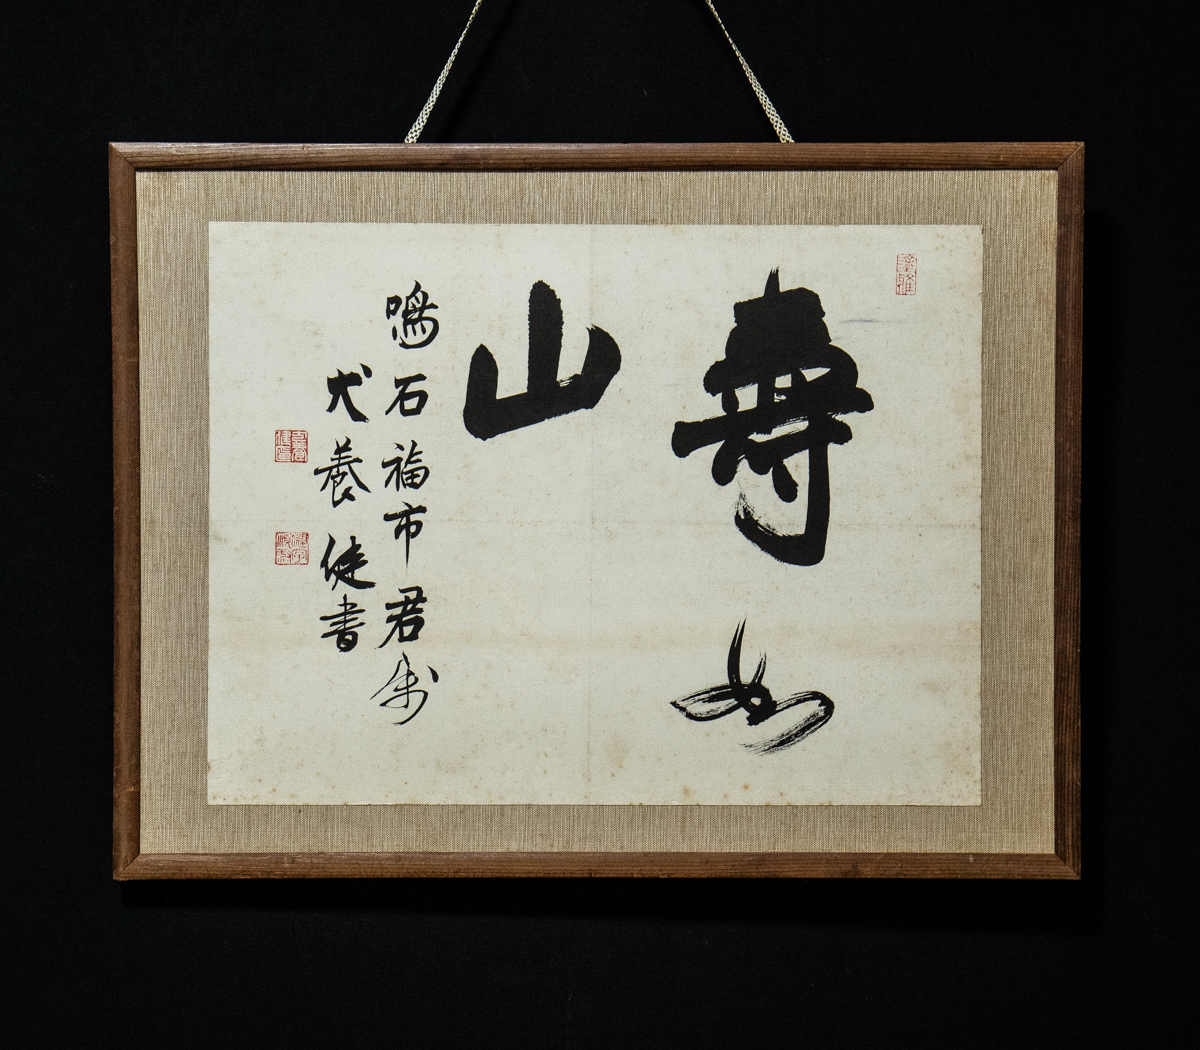 壽如
山
鳴石福市君嘱
犬養健書